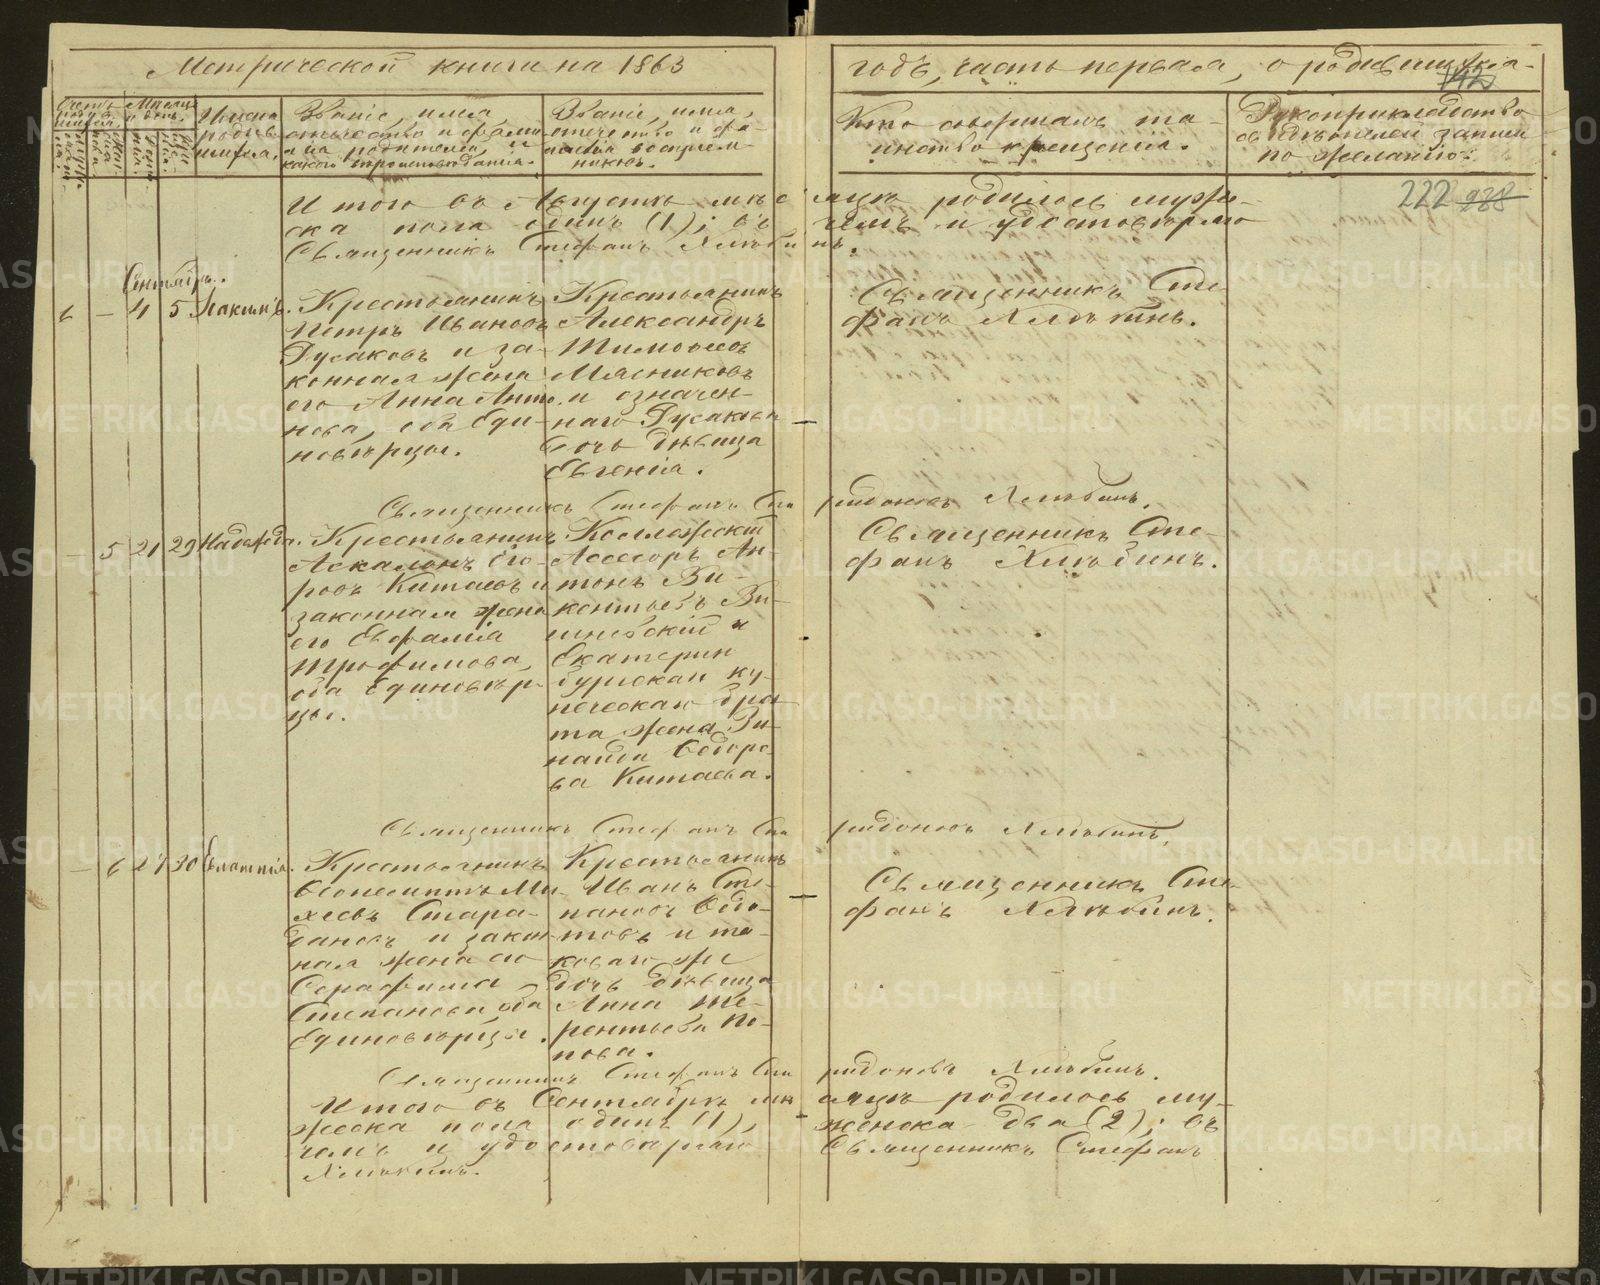 Метрической книги на 1863
годъ, часть первая, о родившихся.
142
Счетъ родившихся.
Мѣсяцъ и день.
Имена родившихся.
Званіе, имя, отчество и фамилія родителей, и какого вѣроисповѣданія.
Званіе, имя, отчество и фамилія воспріемниковъ.
Кто совершалъ таинство крещенія.
Рукоприкладство свидѣтелей записи по желанію.
222 238
Итого въ Августѣ мѣсяцѣ родилось муже-
ска пола одинъ (1); въ чемъ и удостовѣряю
Священникъ Стефанъ Хлѣбинъ.
Сентябрь.
6 — 4 5 Іакимъ.
Крестьянинъ
Петръ Ивановъ
Русаковъ и за-
конная жена
его Анна Анто-
нова, оба Еди-
новѣрцы.
Крестьянинъ
Александръ
Тимоѳеевъ
Мясниковъ
и означен-
наго Русакова
дочь дѣвица
Евгенія.
Священникъ Сте-
фанъ Хлѣбинъ.
Священникъ Стефанъ Спиридоновъ Хлѣбинъ.
— 5 21 29 Надежда.
Крестьянинъ
Аскалонъ Его-
ровъ Китаевъ и
законная жена
его Евфалія
Трофимова,
оба Единовѣр-
цы.
Коллежскій
Ассесоръ Ан-
тонъ Ви-
кентьевъ Ви-
шневскій и
Екатерин
бургская ку-
печеская бра-
та жена Зи-
наида Ѳедоро-
ва Китаева.
Священникъ Сте-
фанъ Хлѣбинъ.
Священникъ Стефанъ Спиридоновъ Хлѣбинъ.
— 6 27 30 Евлампія.
Крестьянинъ
Ѳеопемптъ Ми-
хеевъ Стара-
дановъ и закон-
ная жена его
Серафима
Степанова, оба
Единовѣрцы.
Крестьянинъ
Иванъ Сте-
пановъ Ѳедо-
товъ и та-
коваго же
дочь дѣвица
Анна Те-
рентьева По-
пова.
Священникъ Сте-
фанъ Хлѣбинъ.
Священникъ Стефанъ Спиридоновъ Хлѣбинъ.
Итого въ Сентябрѣ мѣсяцѣ родилось му-
жеска пола одинъ (1), женска два (2); въ
чемъ и удостовѣряю Священникъ Стефанъ
Хлѣбинъ.
METRIKI.GASO-URAL.RU